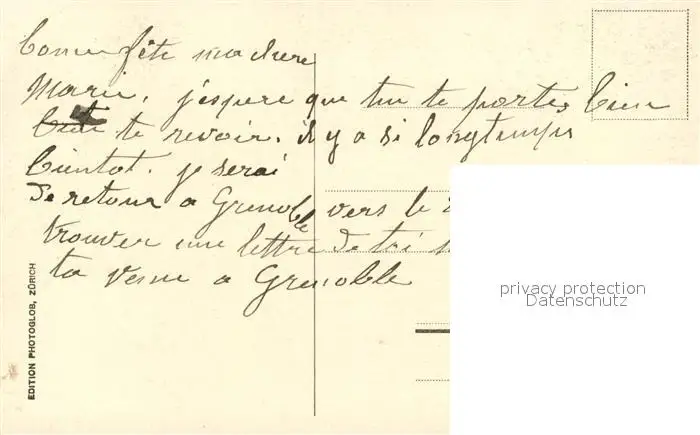 Bonne fête ma chère
Marie, j'espere que tu te portes bien
te revoir. il y a si longtemps
bientot. je serai
De retour a Grenoble vers le 2
trouver une lettre de toi
ta venue a Grenoble
EDITION PHOTOGLOB, ZÜRICH
privacy protection
Datenschutz